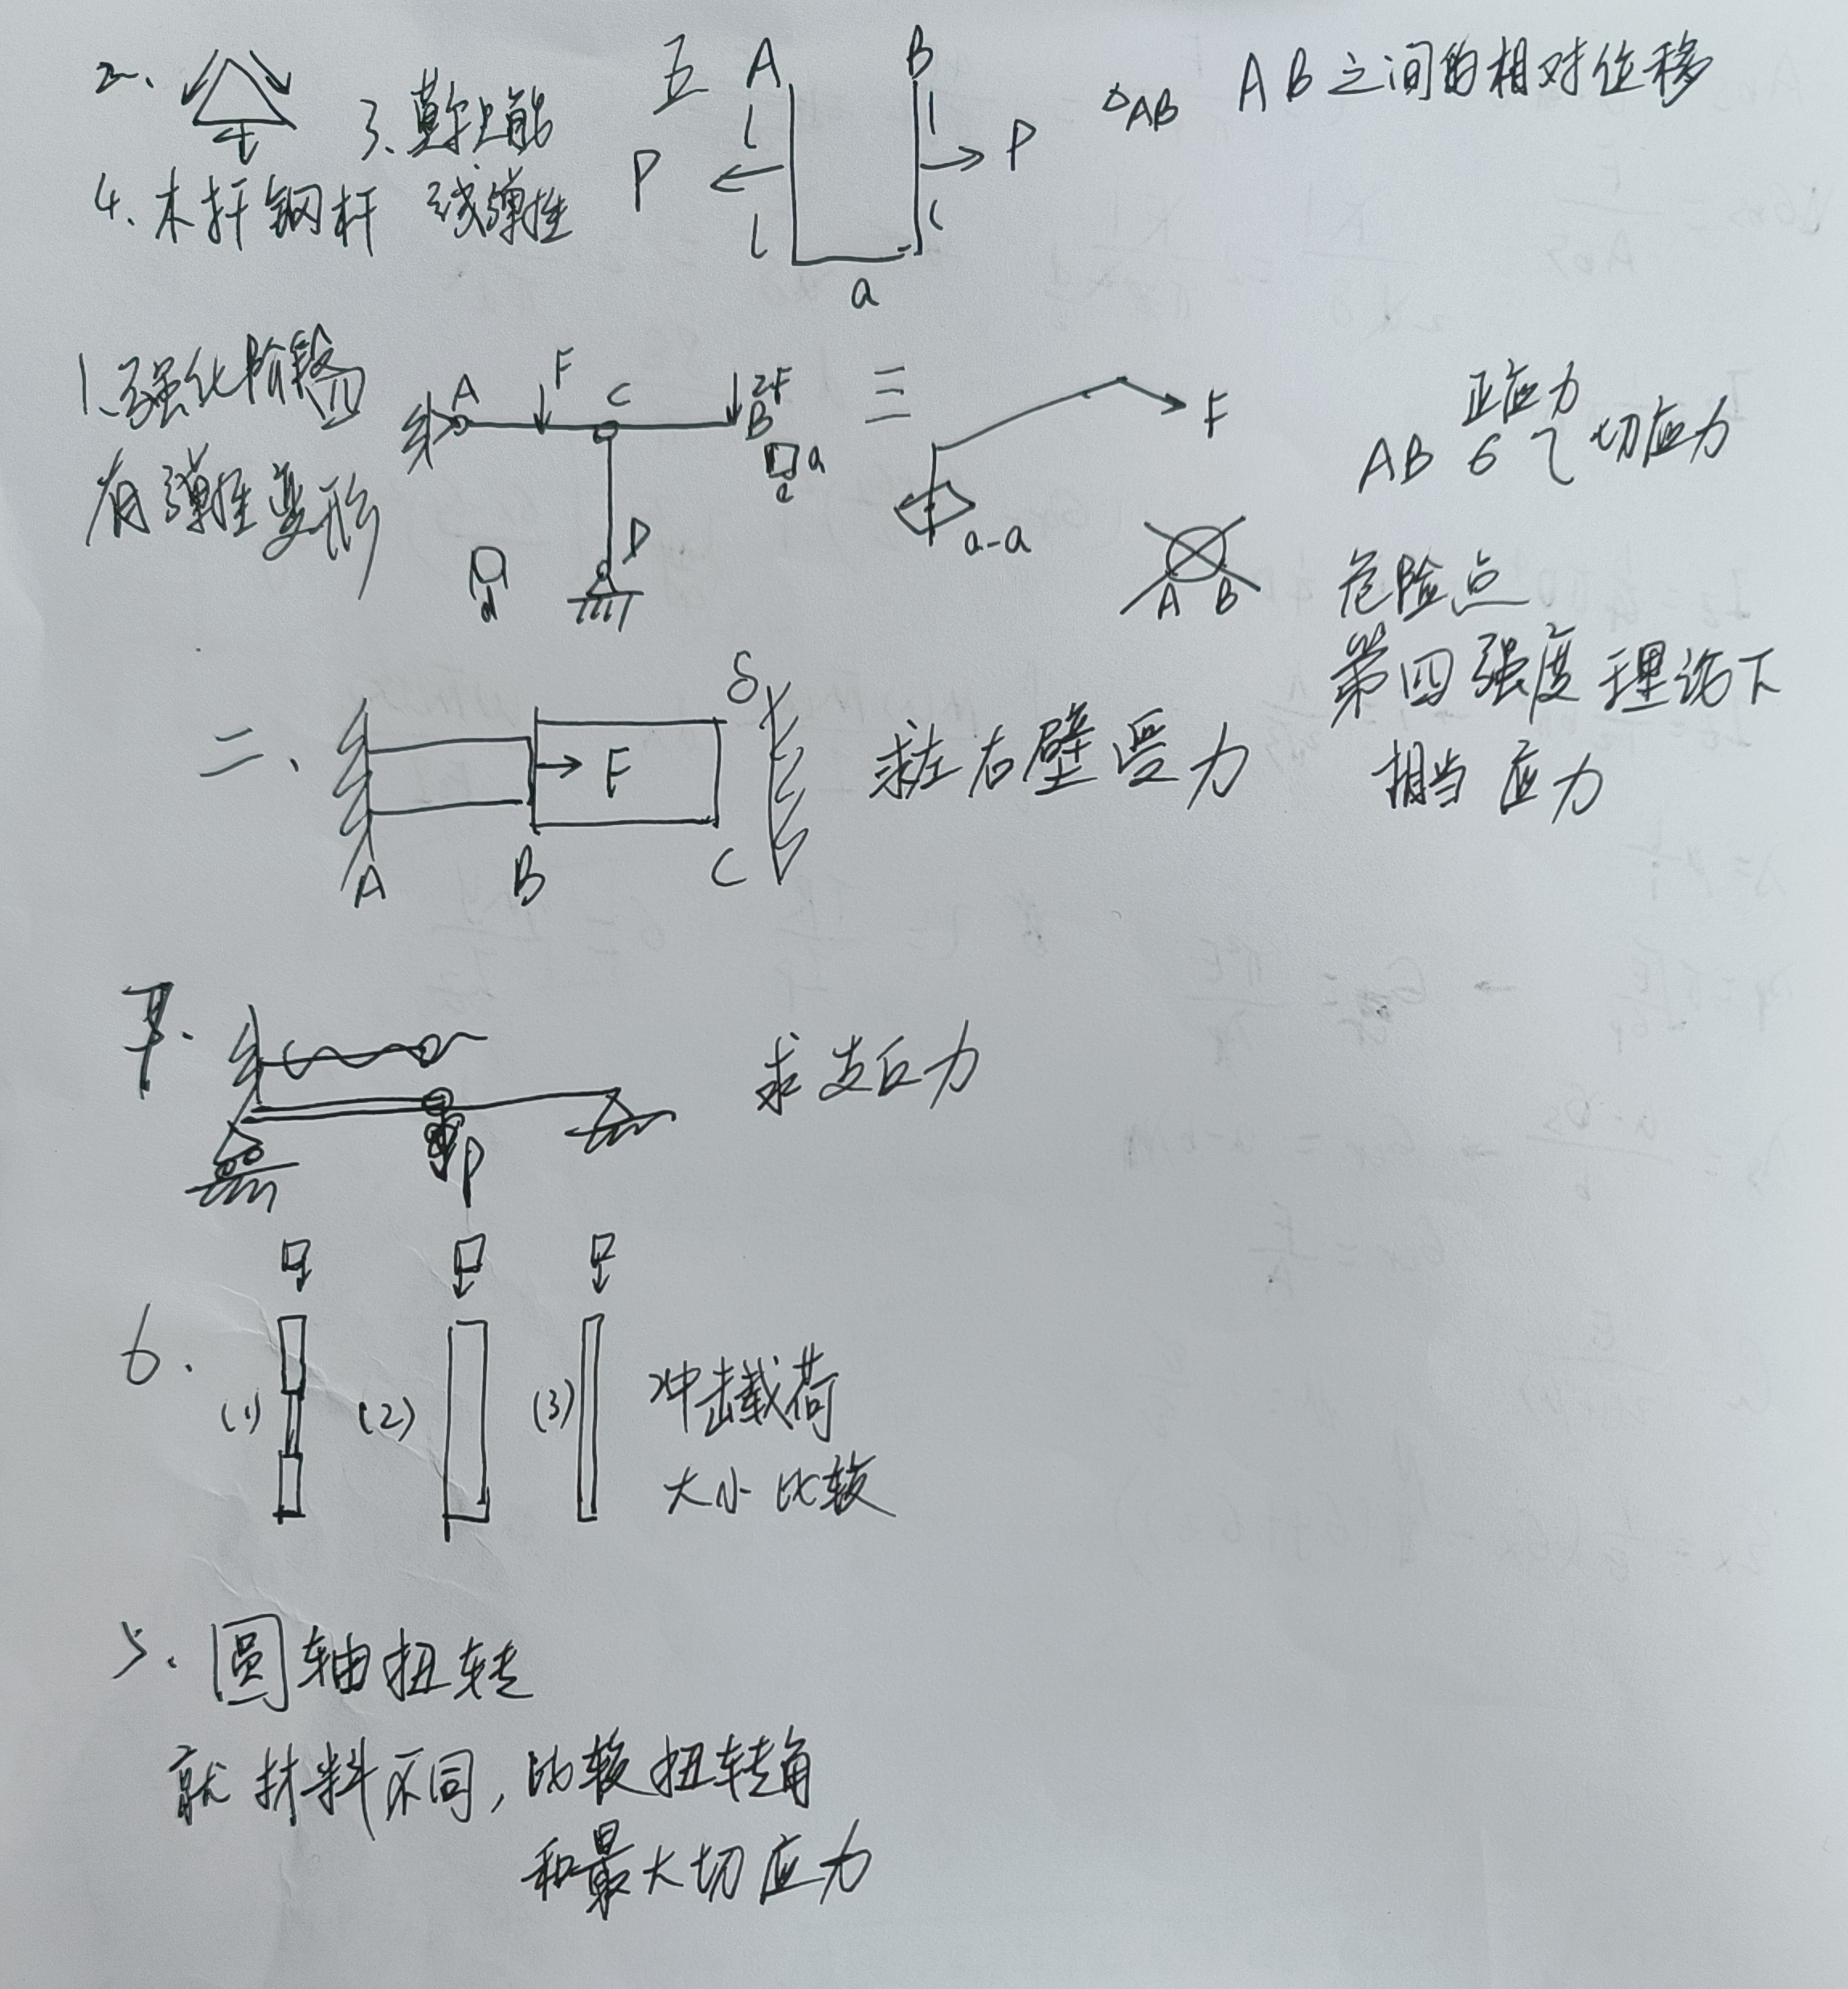 2、
3、莫尔上能
4、木杆钢杆 线弹性
五 A B
l l
P P
l l
a
△AB AB之间的相对位移
1、强化阶段
有弹性变形
A F C 2F
B
a
a
D
d
三
F
a-a
A B
正应力
AB σ τ 切应力
危险点
第四强度理论下
相当应力
二、
F
δ
A B C
求左右壁受力
7.
P
求支反力
6.
(1) (2) (3)
冲击载荷
大小比较
5、圆轴扭转
就材料不同，比较扭转角
和最大切应力